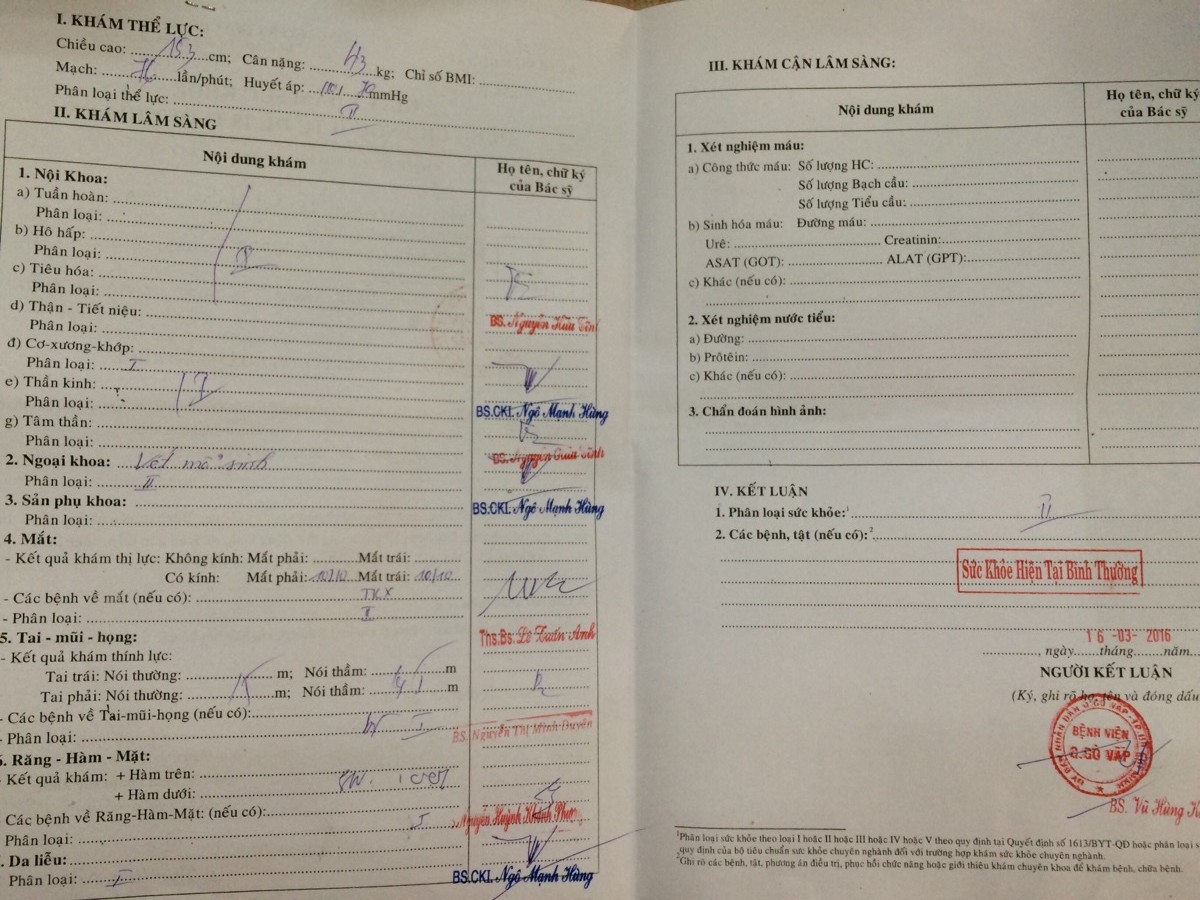 I. KHÁM THỂ LỰC:
Chiều cao: 153 cm; Cân nặng: 43 kg; Chỉ số BMI:
Mạch: lần/phút; Huyết áp: mmHg
Phân loại thể lực: II
II. KHÁM LÂM SÀNG
Nội dung khám
Họ tên, chữ ký của Bác sỹ
1. Nội Khoa:
a) Tuần hoàn:
Phân loại:
b) Hô hấp:
Phân loại:
c) Tiêu hóa:
Phân loại:
d) Thận - Tiết niệu:
Phân loại:
BS. Nguyễn Hữu
đ) Cơ-xương-khớp:
Phân loại: I
e) Thần kinh: I
Phân loại:
BS.CKI. Ngô Mạnh Hùng
g) Tâm thần:
Phân loại:
2. Ngoại khoa: Vết mổ sinh
Phân loại: II
3. Sản phụ khoa:
BS.CKI. Ngô Mạnh Hùng
Phân loại:
4. Mắt:
- Kết quả khám thị lực: Không kính: Mắt phải: Mắt trái:
Có kính: Mắt phải: 10/10 Mắt trái: 10/10
- Các bệnh về mắt (nếu có): TKX
- Phân loại: II
Ths.Bs. Lê Tuấn Anh
5. Tai - mũi - họng:
- Kết quả khám thính lực:
Tai trái: Nói thường: m; Nói thầm: m
Tai phải: Nói thường: m; Nói thầm: m
- Các bệnh về Tai-mũi-họng (nếu có):
- Phân loại: I
BS. Nguyễn Thị Minh Duyên
6. Răng - Hàm - Mặt:
- Kết quả khám: + Hàm trên:
+ Hàm dưới:
Các bệnh về Răng-Hàm-Mặt: (nếu có):
Nguyễn Huỳnh Khánh
Phân loại: I
Da liễu:
Phân loại: I
BS.CKI. Ngô Mạnh Hùng
III. KHÁM CẬN LÂM SÀNG:
Nội dung khám
Họ tên, chữ ký của Bác sỹ
1. Xét nghiệm máu:
a) Công thức máu: Số lượng HC:
Số lượng Bạch cầu:
Số lượng Tiểu cầu:
b) Sinh hóa máu: Đường máu:
Urê: Creatinin:
ASAT (GOT): ALAT (GPT):
c) Khác (nếu có):
2. Xét nghiệm nước tiểu:
a) Đường:
b) Prôtêin:
c) Khác (nếu có):
3. Chẩn đoán hình ảnh:
IV. KẾT LUẬN
1. Phân loại sức khỏe:¹ II
2. Các bệnh, tật (nếu có):²
Sức Khỏe Hiện Tại Bình Thường
16 -03- 2016
, ngày tháng năm
NGƯỜI KẾT LUẬN
(Ký, ghi rõ họ, tên và đóng dấu
BỆNH VIỆN
Q.GÒ VẤP
BS. Vũ Hùng
¹Phân loại sức khỏe theo loại I hoặc II hoặc III hoặc IV hoặc V theo quy định tại Quyết định số 1613/BYT-QĐ hoặc phân loại
quy định của bộ tiêu chuẩn sức khỏe chuyên ngành đối với trường hợp khám sức khỏe chuyên ngành.
²Ghi rõ các bệnh, tật, phương án điều trị, phục hồi chức năng hoặc giới thiệu khám chuyên khoa để khám bệnh, chữa bệnh.